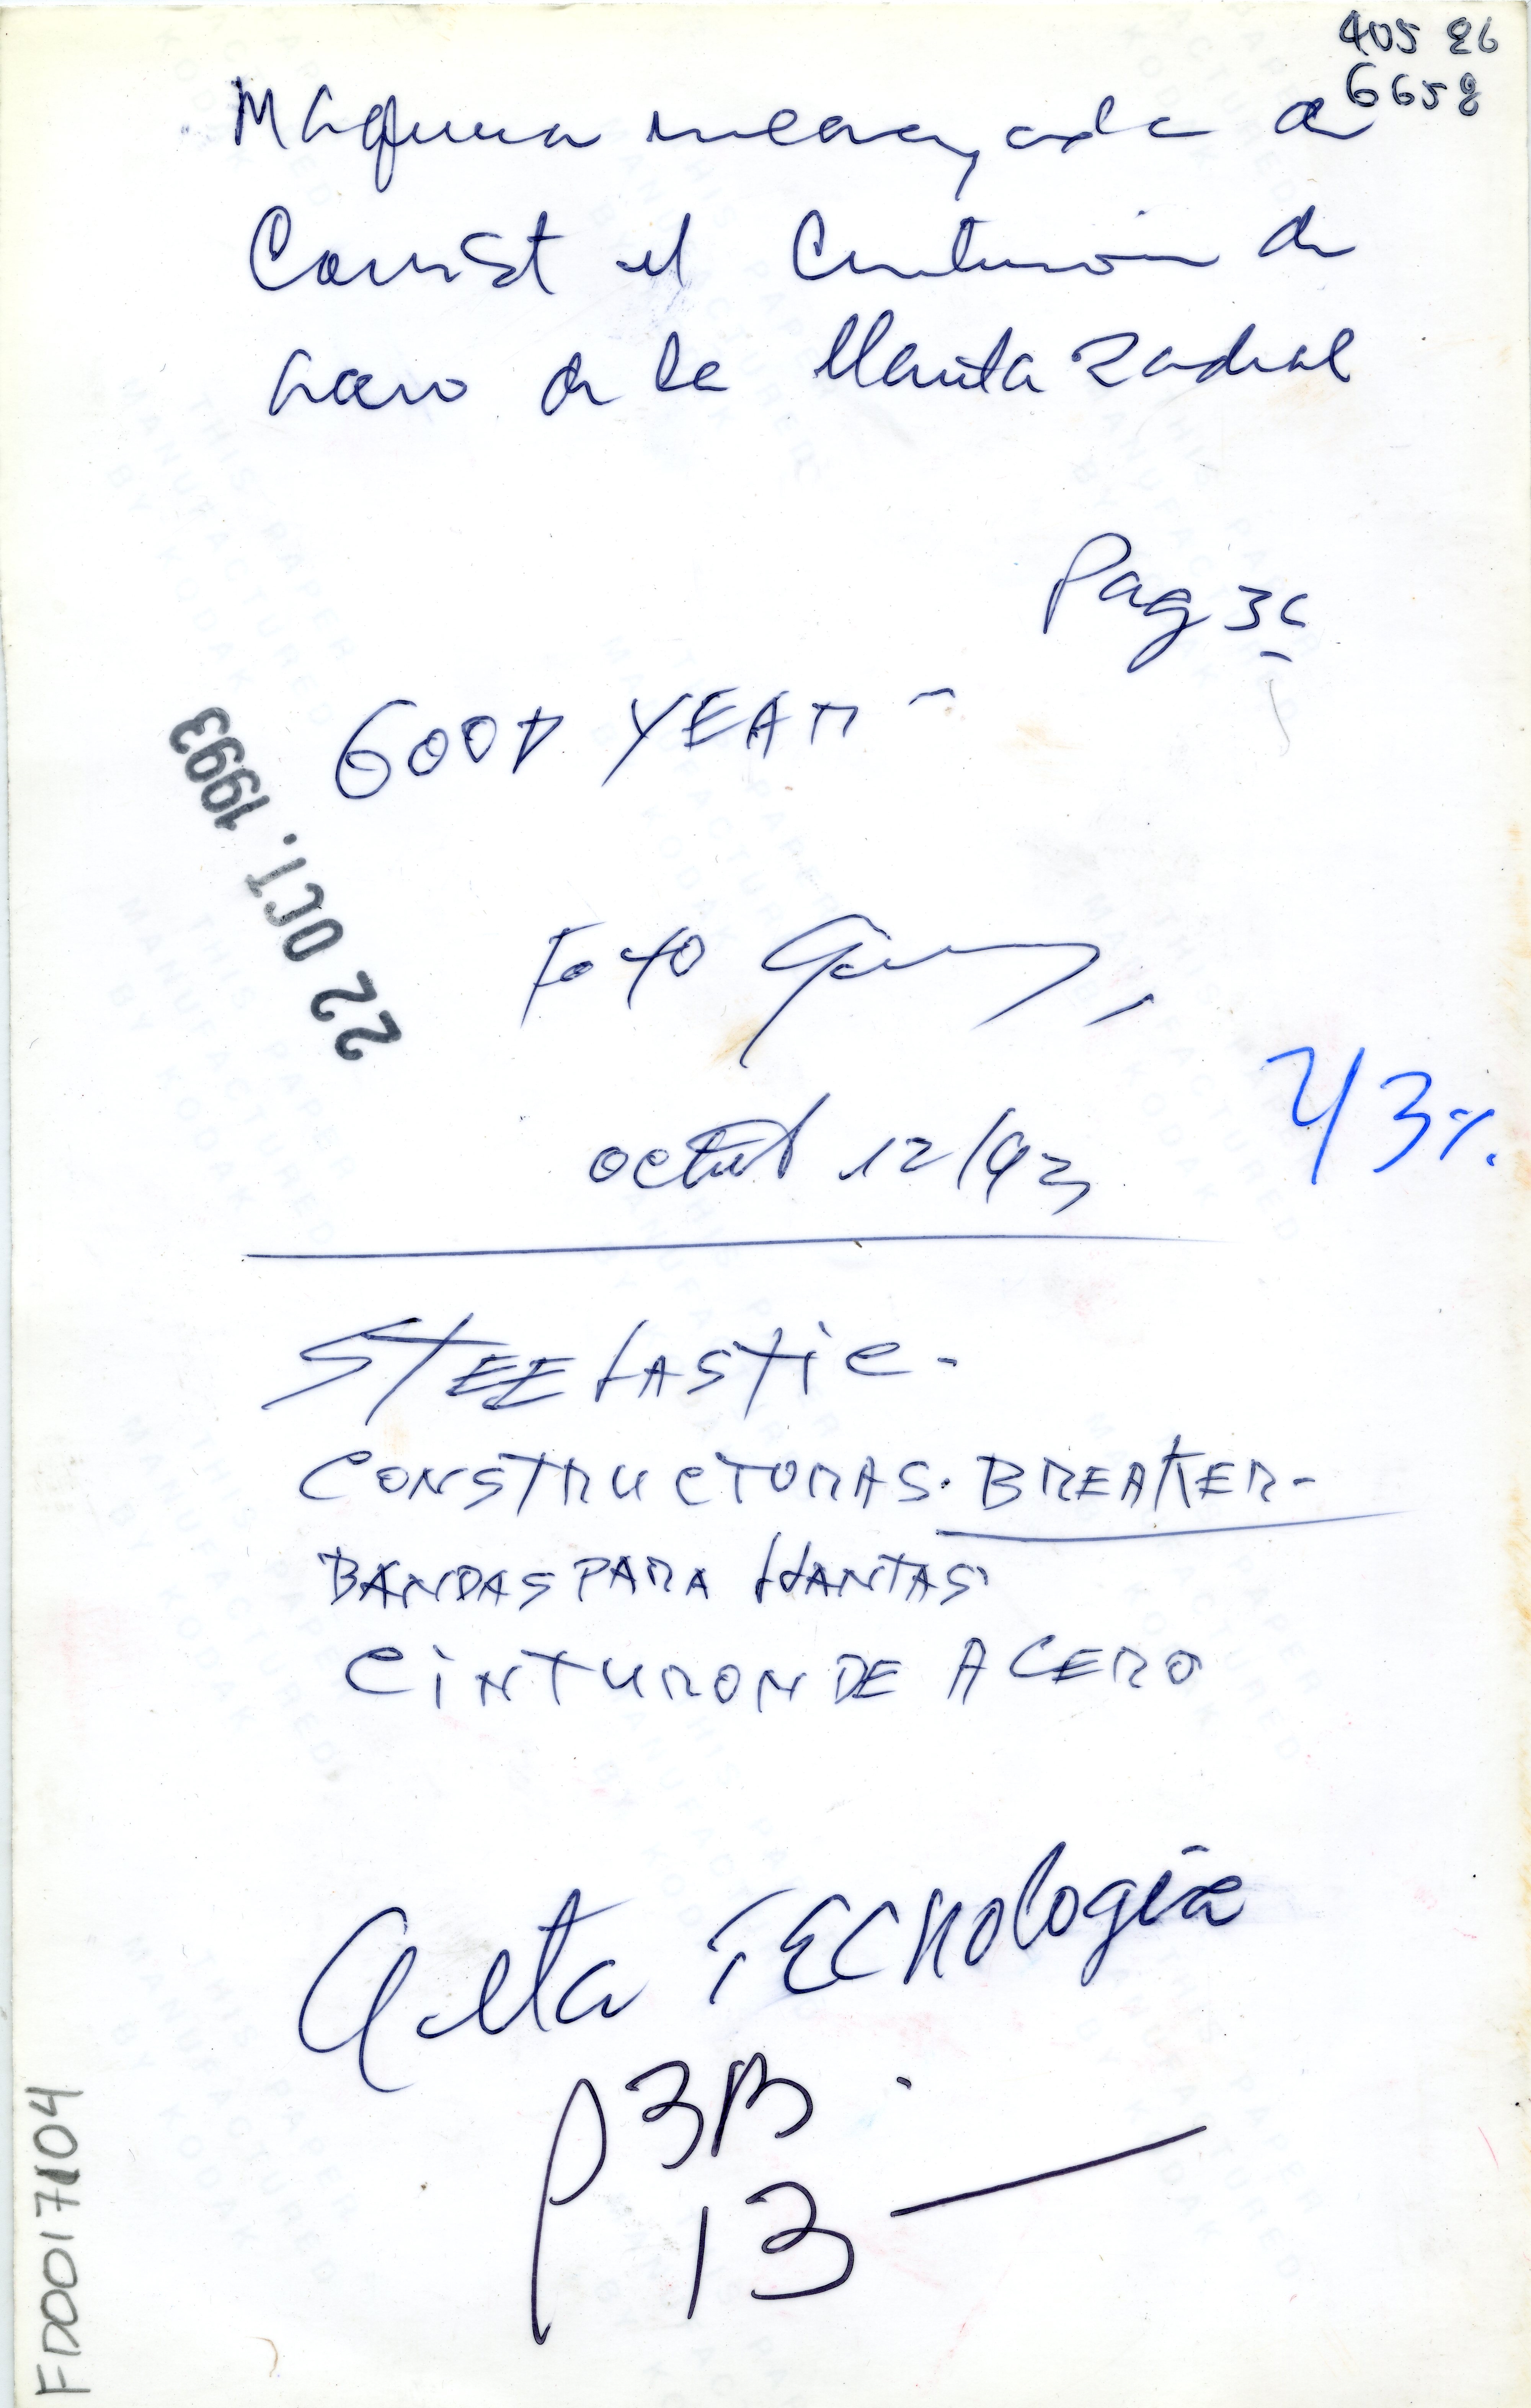 405 86
6658
Maquina encargada de
Const el Cinturón de
acero de la llanta Radial
Pag 3C
GOOD YEAR -
22 OCT. 1993
Foto
octub 12/93
43%.
STEELASTIC -
CONSTRUCTORAS. BREAKER -
BANDAS PARA LLANTAS
CINTURON DE ACERO
Alta TECNOlogía
P 3B.
13 —
FD0017104